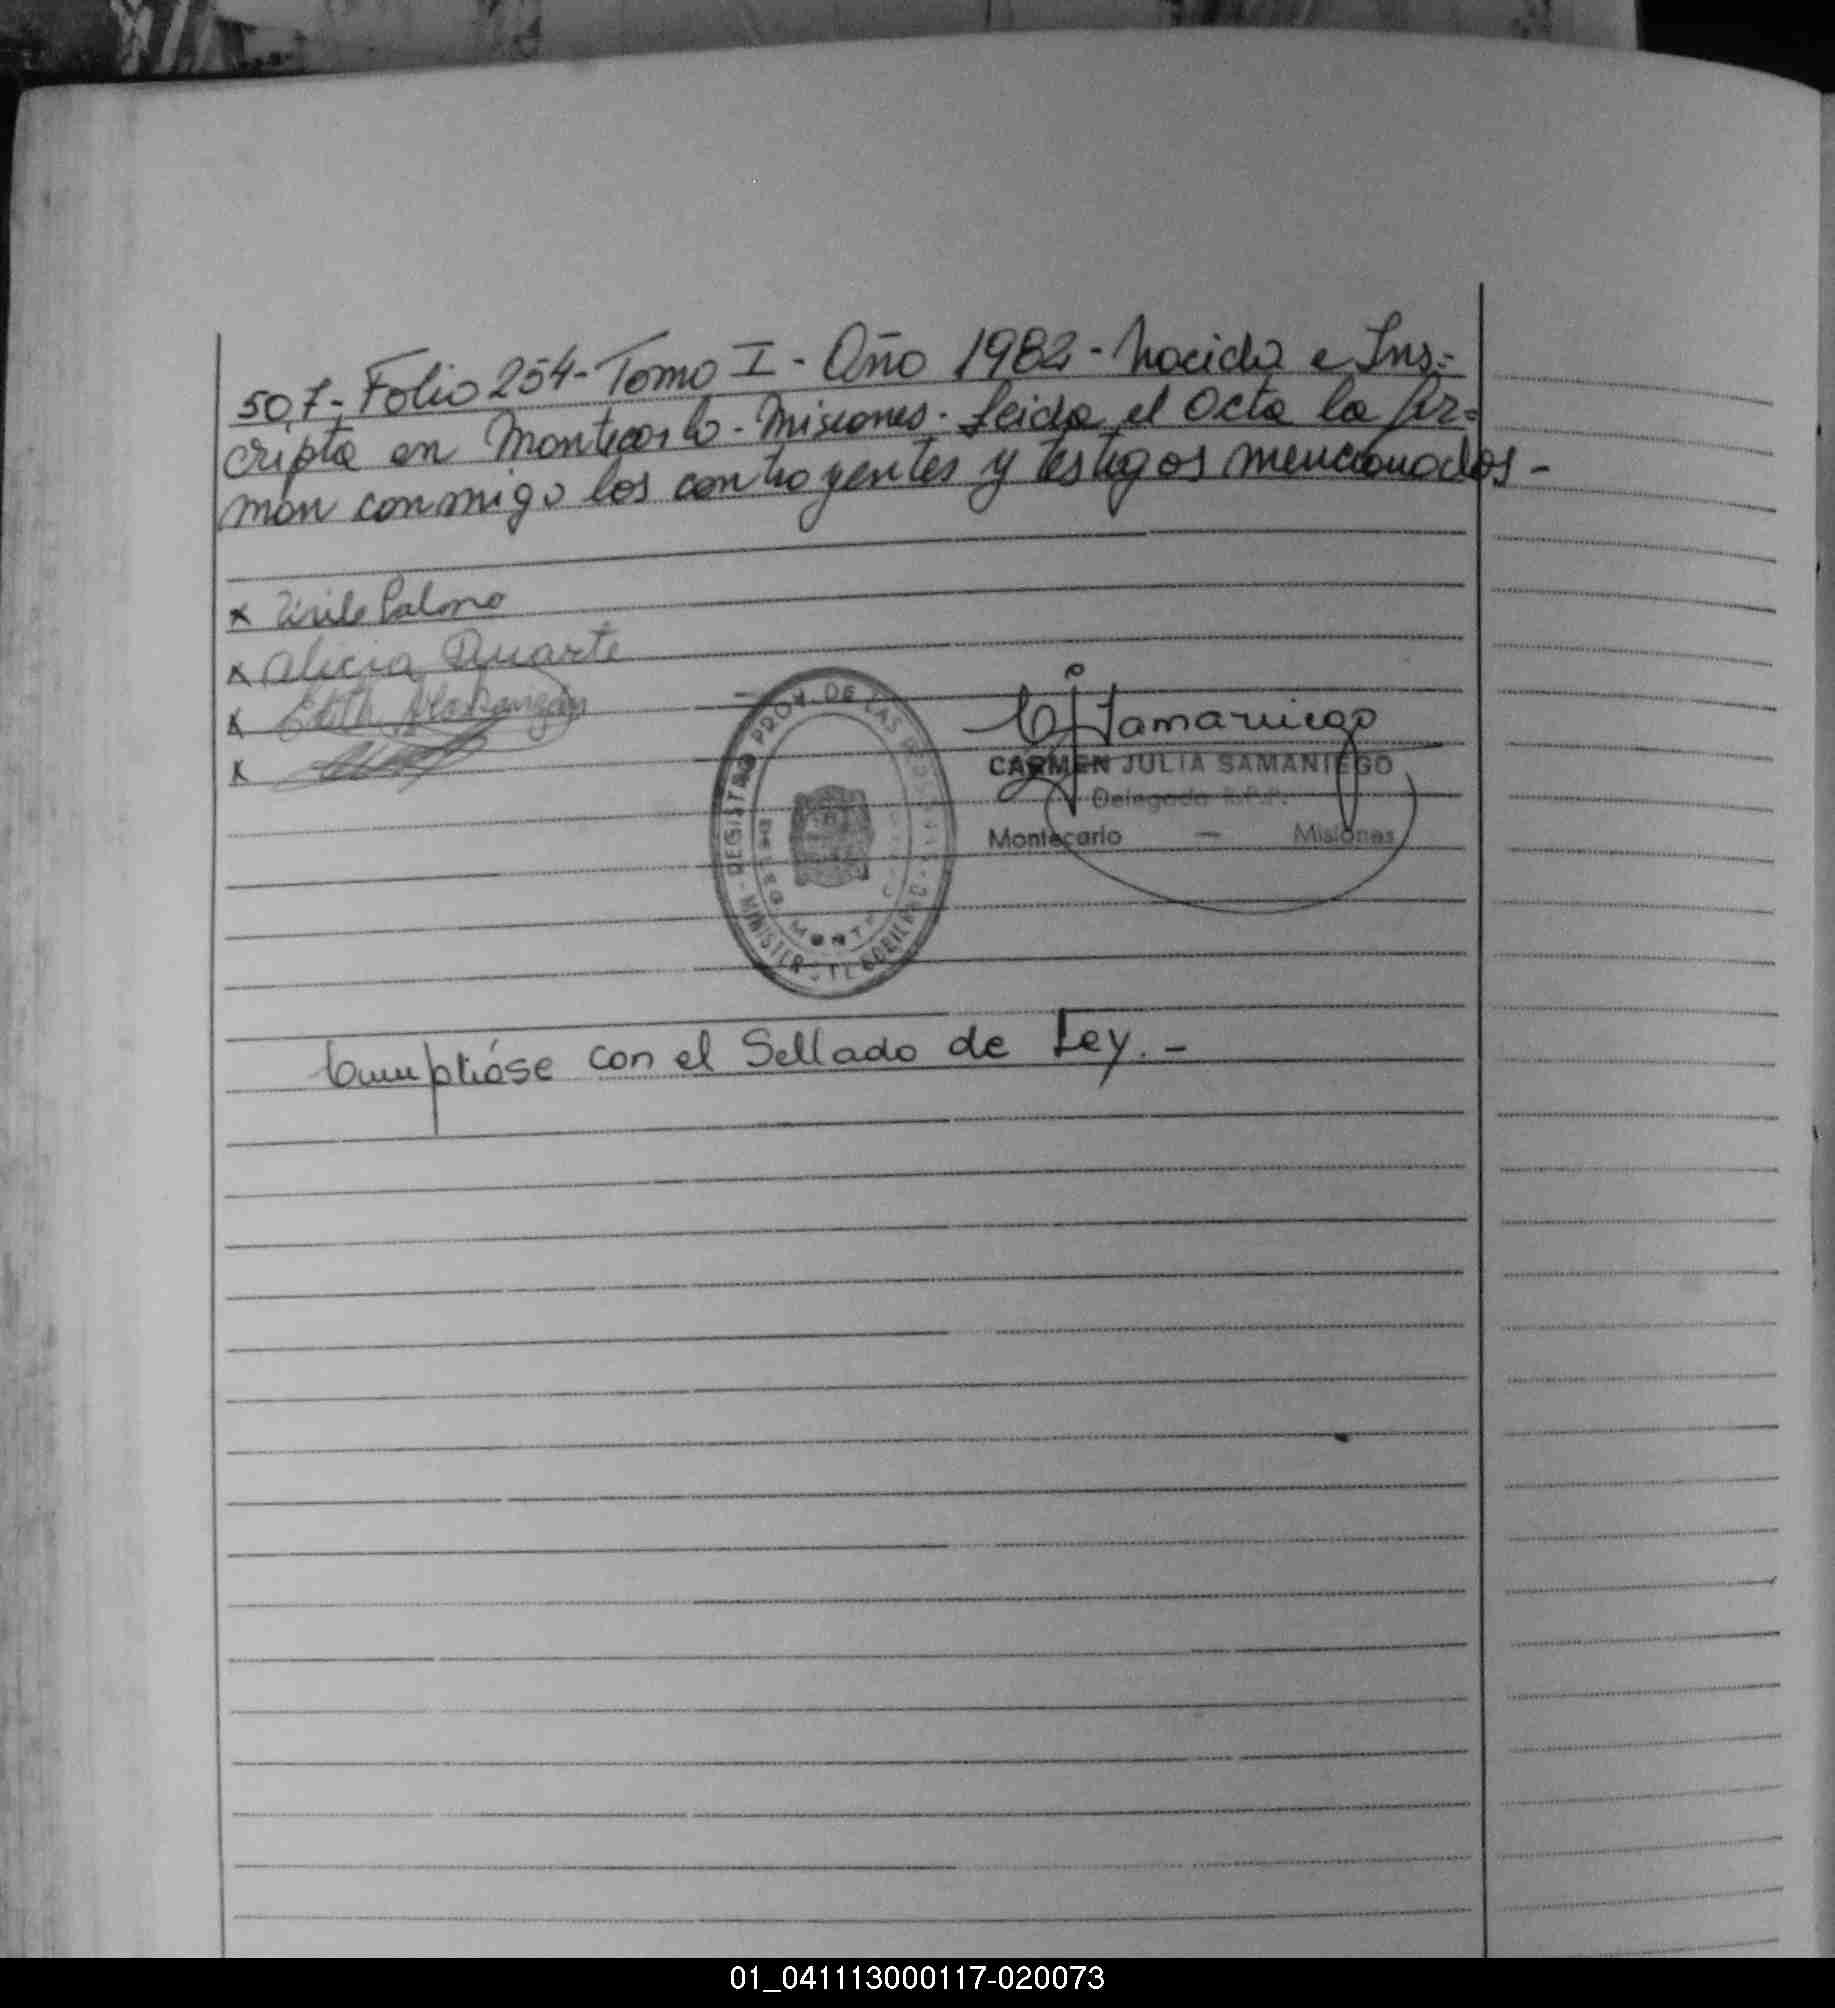 507-Folio 254-Tomo I-Año 1982-Nacida e Ins=
cripta en Montecarlo-Misiones-Leida el Acta la fir=
man conmigo los contrayentes y testigos mencionados-
x Palma
x Alicia Duarte
x Edith
x
C J Samaniego
CARMEN JULIA SAMANIEGO
Delegada R.P.P.
Montecarlo — Misiones
REGISTRO PROV. DE LAS PERSONAS
Cumplióse con el Sellado de Ley.-
01_041113000117-020073